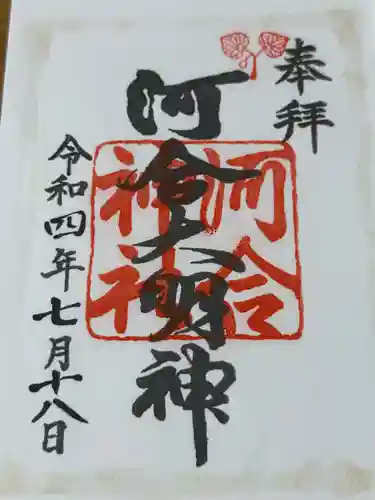 奉拝
河合大明神
河合神社
令和四年七月十八日